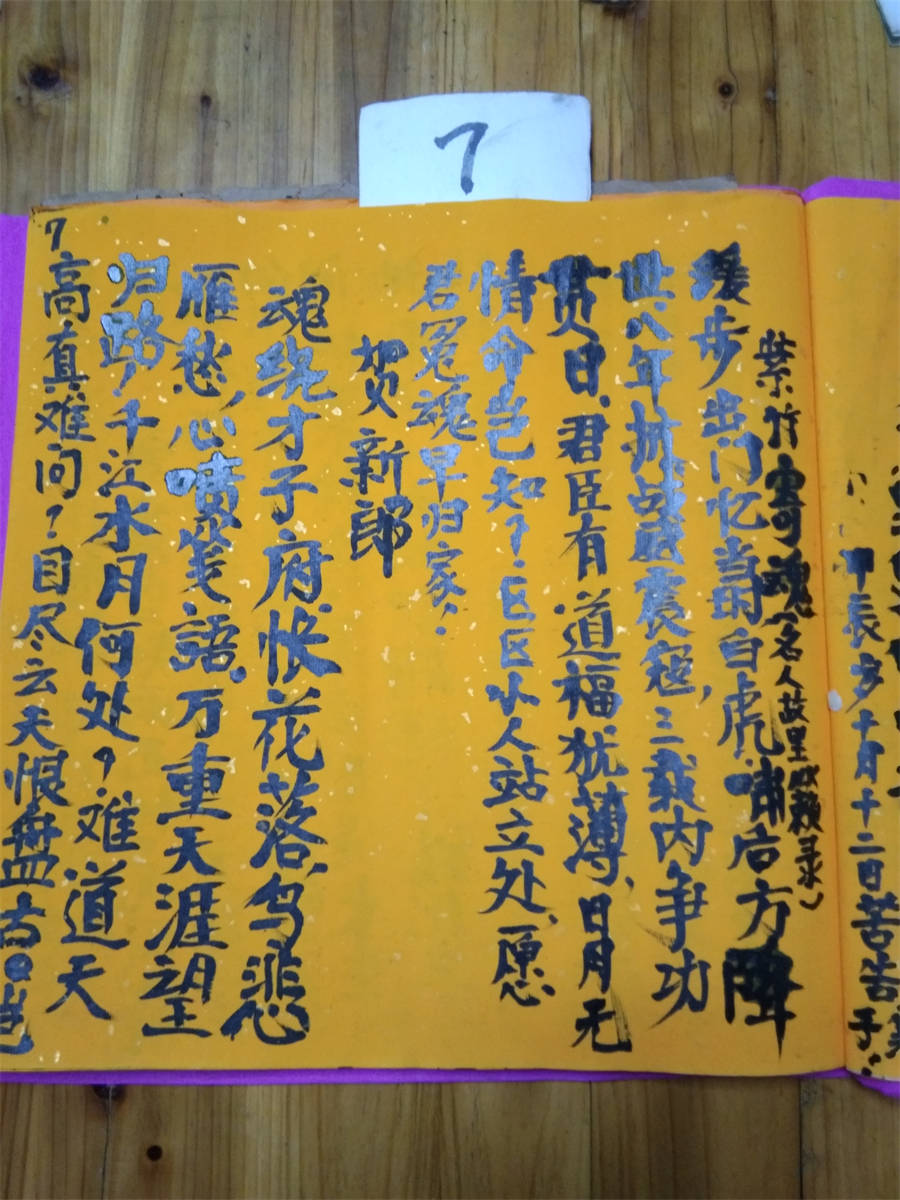 7
甲辰岁十月十二日苦告于
紫竹灵魂(名人故里感赖录)
缓步出门忆当朝白虎啸后方降
世，八年抗战威震寇，三载内争功
贯日，君臣有道福犹薄，日月无
情命岂知？区区小人站立处，愿
君冤魂早归家！
贺新郎
魂绕才子府怅花落，鸟悲
雁愁，心喷笺語。万重天涯望
归路，千江水月何处？难道天
7高真难问？目尽云天恨無古